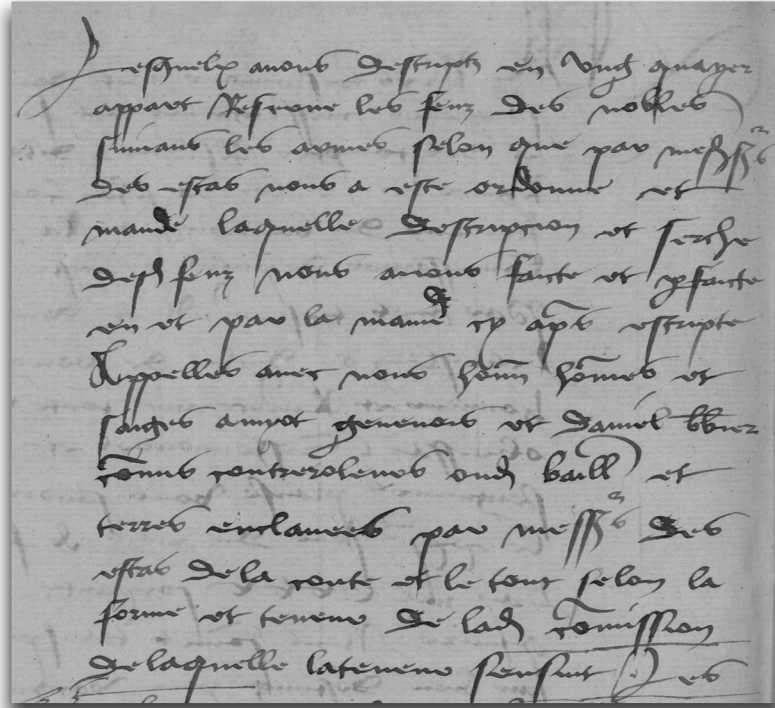 Lesquelx avons descriptz en ung quayer
appart Reserve les feuz des nobles
suivans les armes selon que par mess^rs
des estas nous a este ordonne et
mande laquelle description et serche
desd feuz nous avons faicte et pfaicte
en et par la manie cy aps escripte
Appelles avec nous honn hommes et
saiges amyot genevois et daniel
comis contreroleurs oud baill et
terres enclavees par mess^rs des
estas de la conte et le tout selon la
forme et teneur de lad comission
de laquelle la teneur sensuit Les